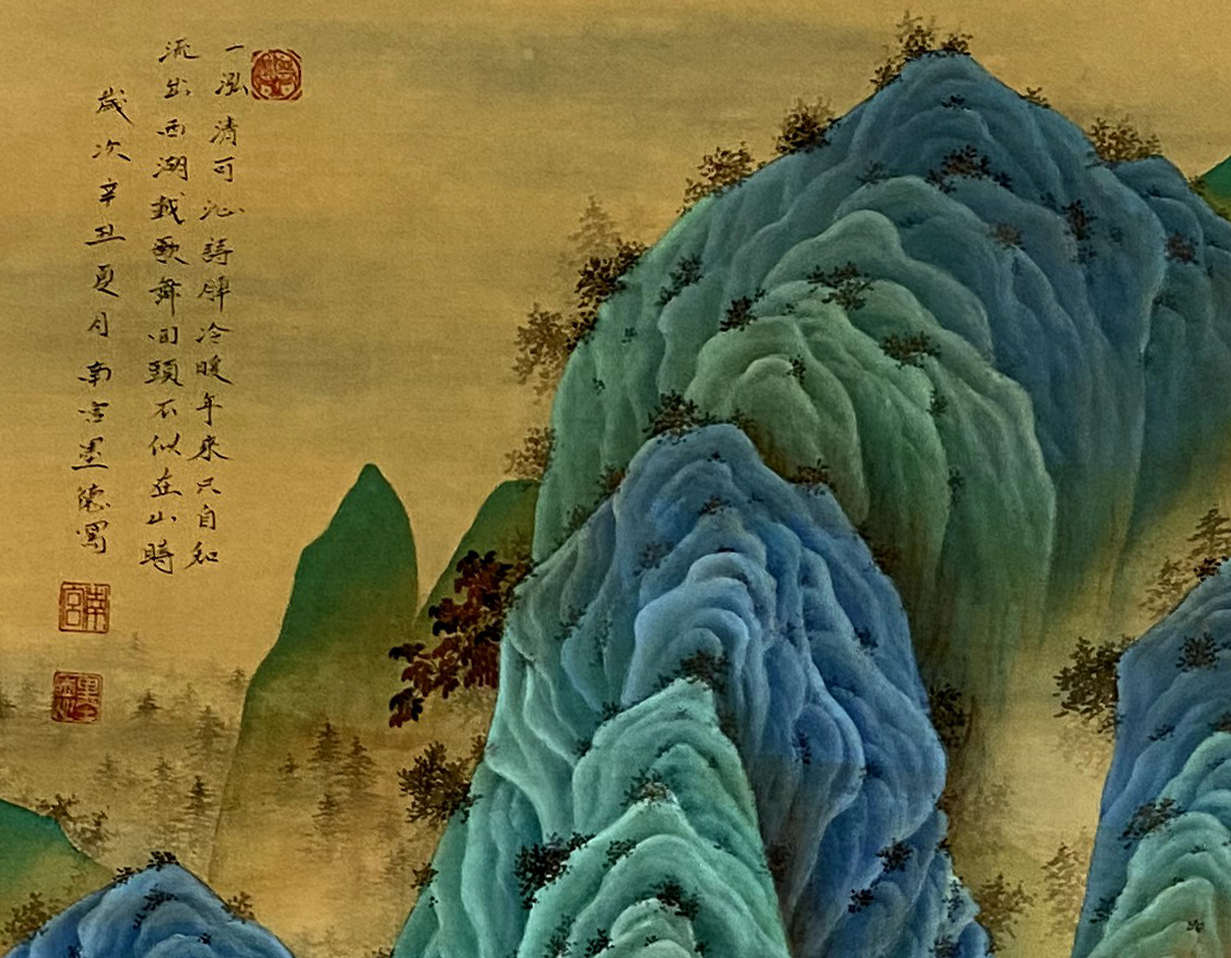 一泓清可沁詩脾冷暖年来只自知
流出西湖載歌舞回頭不似在山時
歲次辛丑夏月南宫墨寫
南宫